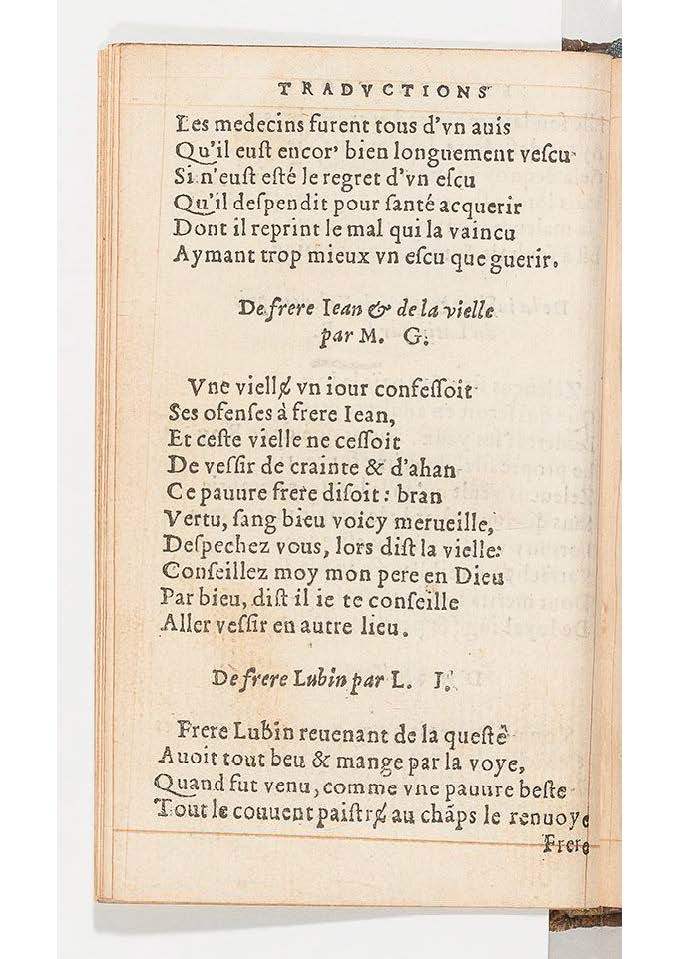 TRADVCTIONS
Les medecins furent tous d'vn auis
Qu'il euſt encor' bien longuement veſcu
Si n'euſt eſté le regret d'vn eſcu
Qu'il deſpendit pour ſanté acquerir
Dont il reprint le mal qui la vaincu
Aymant trop mieux vn eſcu que guerir.
De frere Iean & de la vielle
par M. G.
Vne viellɇ vn iour confeſſoit
Ses ofenſes à frere Iean,
Et ceſte vielle ne ceſſoit
De veſſir de crainte & d'ahan
Ce pauure frere diſoit: bran
Vertu, ſang bieu voicy merueille,
Deſpechez vous, lors diſt la vielle:
Conſeillez moy mon pere en Dieu
Par bieu, diſt il ie te conſeille
Aller veſſir en autre lieu.
De frere Lubin par L. I.
Frere Lubin reuenant de la queſte
Auoit tout beu & mange par la voye,
Quand fut venu, comme vne pauure beſte
Tout le couuent paiſtrɇ au chãps le renuoye
Frere